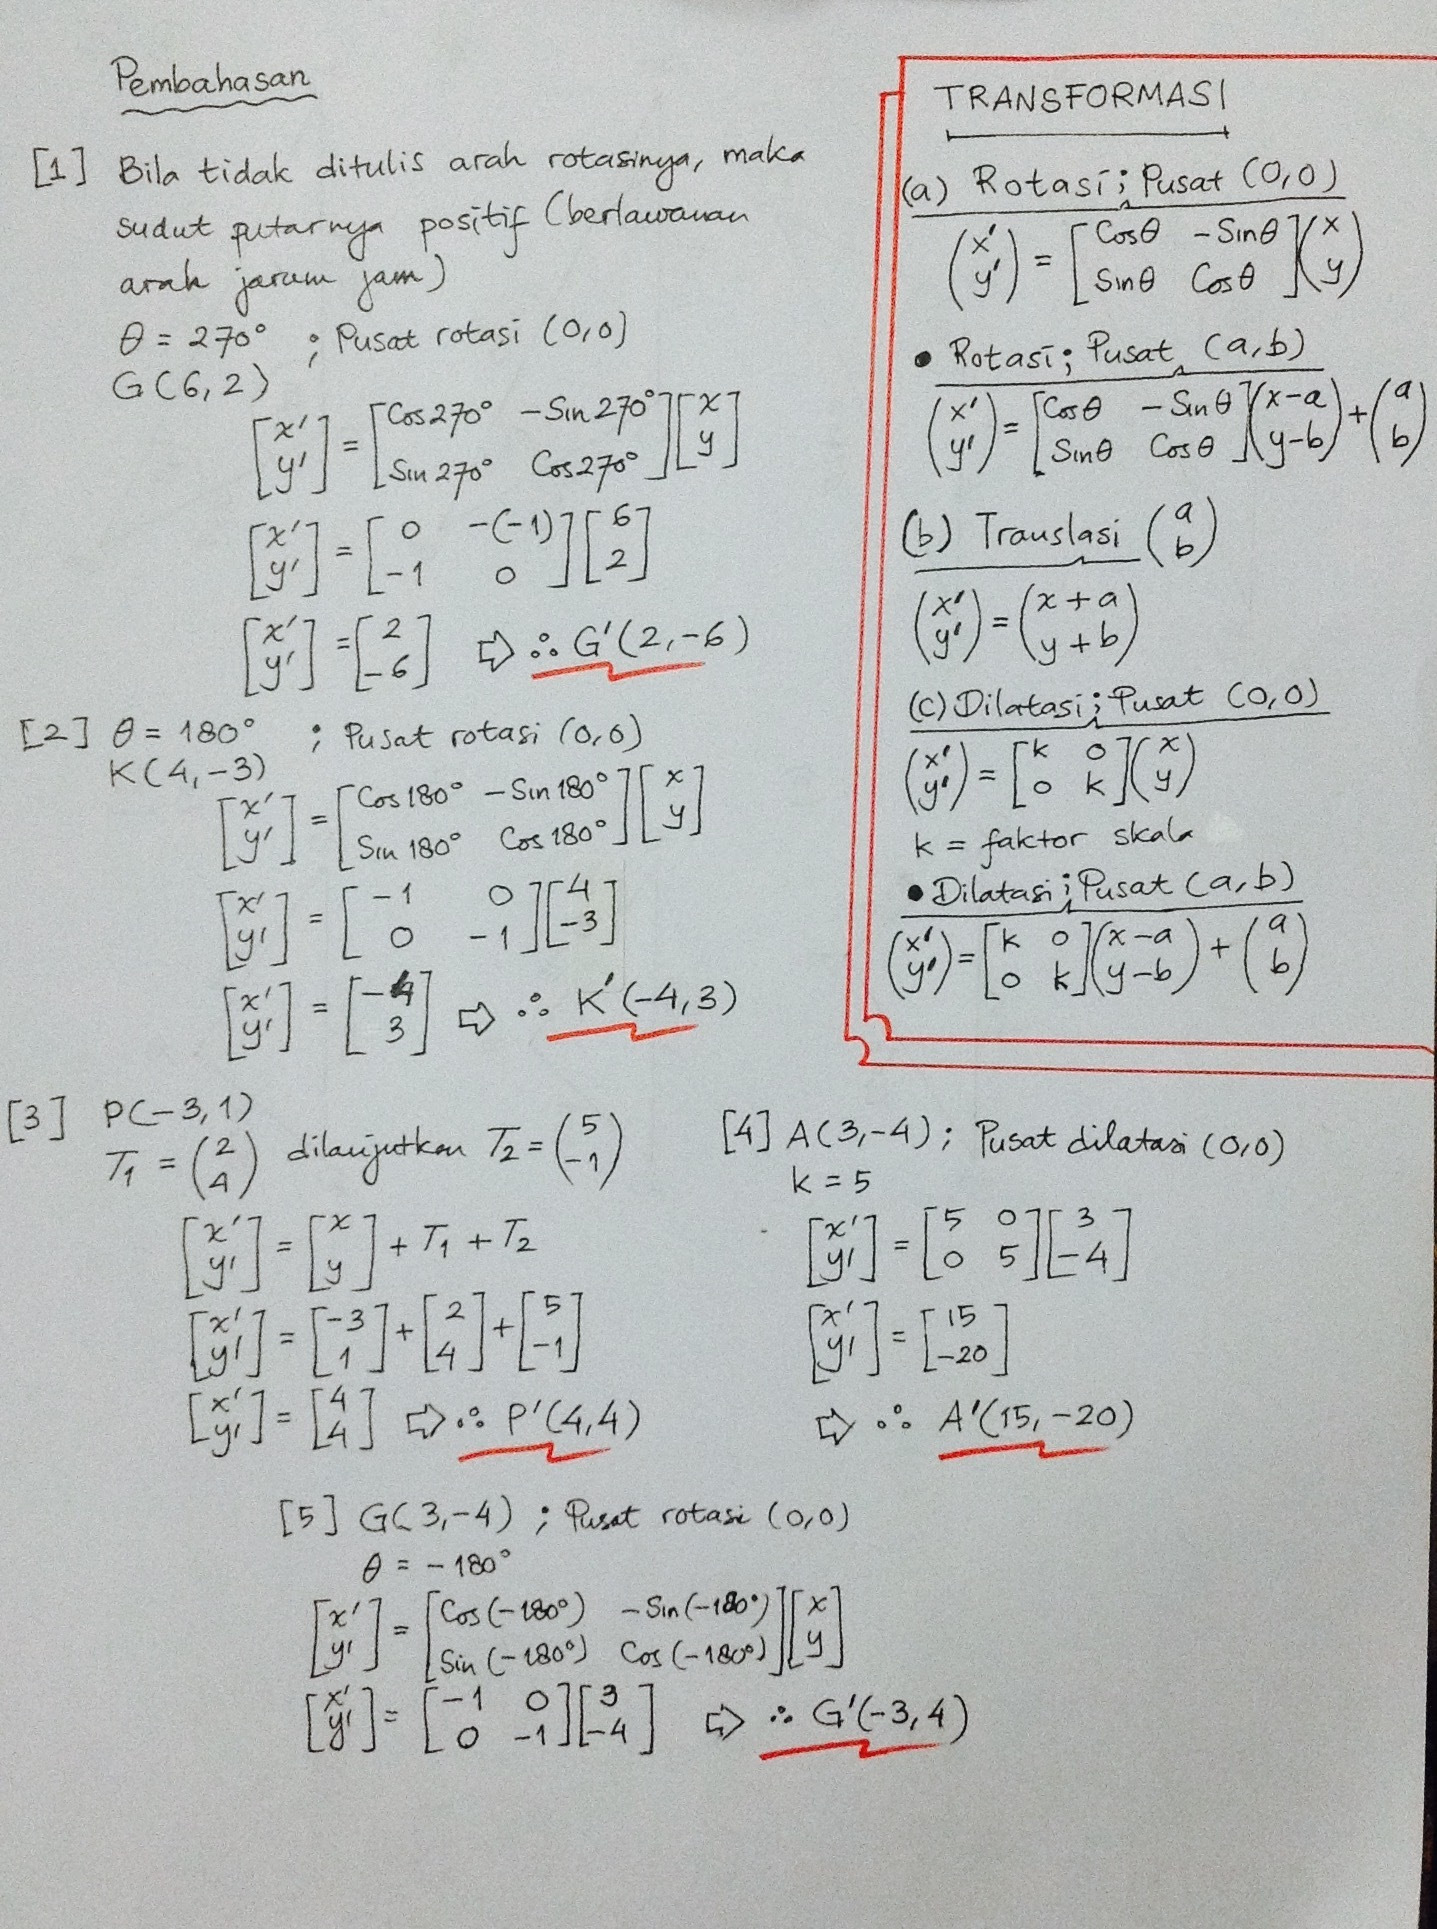 Pembahasan
[1] Bila tidak ditulis arah rotasinya, maka
sudut putarnya positif (berlawanan
arah jarum jam)
θ = 270° ; Pusat rotasi (0,0)
G(6,2)
[x' y'] = [Cos 270° -Sin 270° Sin 270° Cos 270°] [x y]
[x' y'] = [0 -(-1) -1 0] [6 2]
[x' y'] = [2 -6] ⇨ ∴ G'(2,-6)
[2] θ = 180° ; Pusat rotasi (0,0)
K(4,-3)
[x' y'] = [Cos 180° -Sin 180° Sin 180° Cos 180°] [x y]
[x' y'] = [-1 0 0 -1] [4 -3]
[x' y'] = [-4 3] ⇨ ∴ K'(-4,3)
TRANSFORMASI
(a) Rotasi; Pusat (0,0)
(x' y') = [Cosθ -Sinθ Sinθ Cosθ] (x y)
• Rotasi; Pusat (a,b)
(x' y') = [Cosθ -Sinθ Sinθ Cosθ] (x-a y-b) + (a b)
(b) Translasi (a b)
(x' y') = (x+a y+b)
(c) Dilatasi; Pusat (0,0)
(x' y') = [k 0 0 k] (x y)
k = faktor skala
• Dilatasi; Pusat (a,b)
(x' y') = [k 0 0 k] (x-a y-b) + (a b)
[3] P(-3,1)
T1 = (2 4) dilanjutkan T2 = (5 -1)
[x' y'] = [x y] + T1 + T2
[x' y'] = [-3 1] + [2 4] + [5 -1]
[x' y'] = [4 4] ⇨ ∴ P'(4,4)
[4] A(3,-4) ; Pusat dilatasi (0,0)
k = 5
[x' y'] = [5 0 0 5] [3 -4]
[x' y'] = [15 -20]
⇨ ∴ A'(15,-20)
[5] G(3,-4) ; Pusat rotasi (0,0)
θ = -180°
[x' y'] = [Cos(-180°) -Sin(-180°) Sin(-180°) Cos(-180°)] [x y]
[x' y'] = [-1 0 0 -1] [3 -4] ⇨ ∴ G'(-3,4)